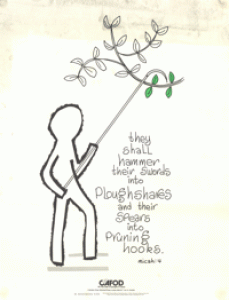 they
shall
hammer
their swords
into
Ploughshares
and their
Spears
into
Pruning
hooks.
micah:4
CAFOD